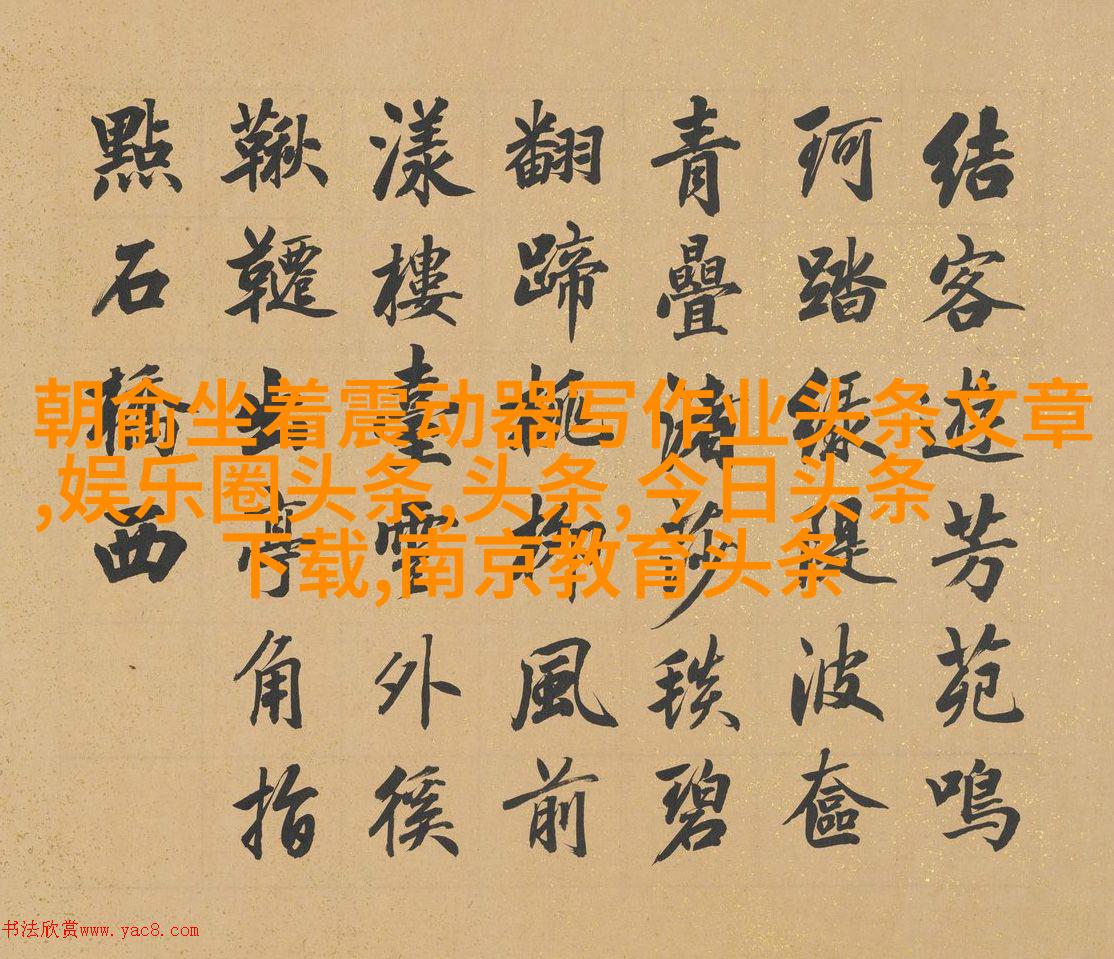 結客遊芳苑鳴
珂踏綠堤波奩
青疊莎毯碧
翻蹄桃柳風前
漾樓臺雲外徯
鞦韆出亭角指
點石橋西
朝俞坐着震动器写作业头条文章
,娱乐圈头条,头条,今日头条
下载,南京教育头条
书法欣赏www.yac8.com